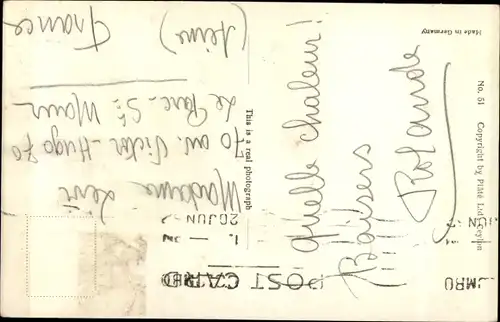 POST CARD
Quelle chaleur!
Baisers
Rolande
Madame Lévi
70 av. Victor-Hugo 70
Le Parc-St Maur
(Seine)
France
This is a real photograph
No. 51 Copyright by Plâté Ltd., Ceylon
Made in Germany
20 JUN